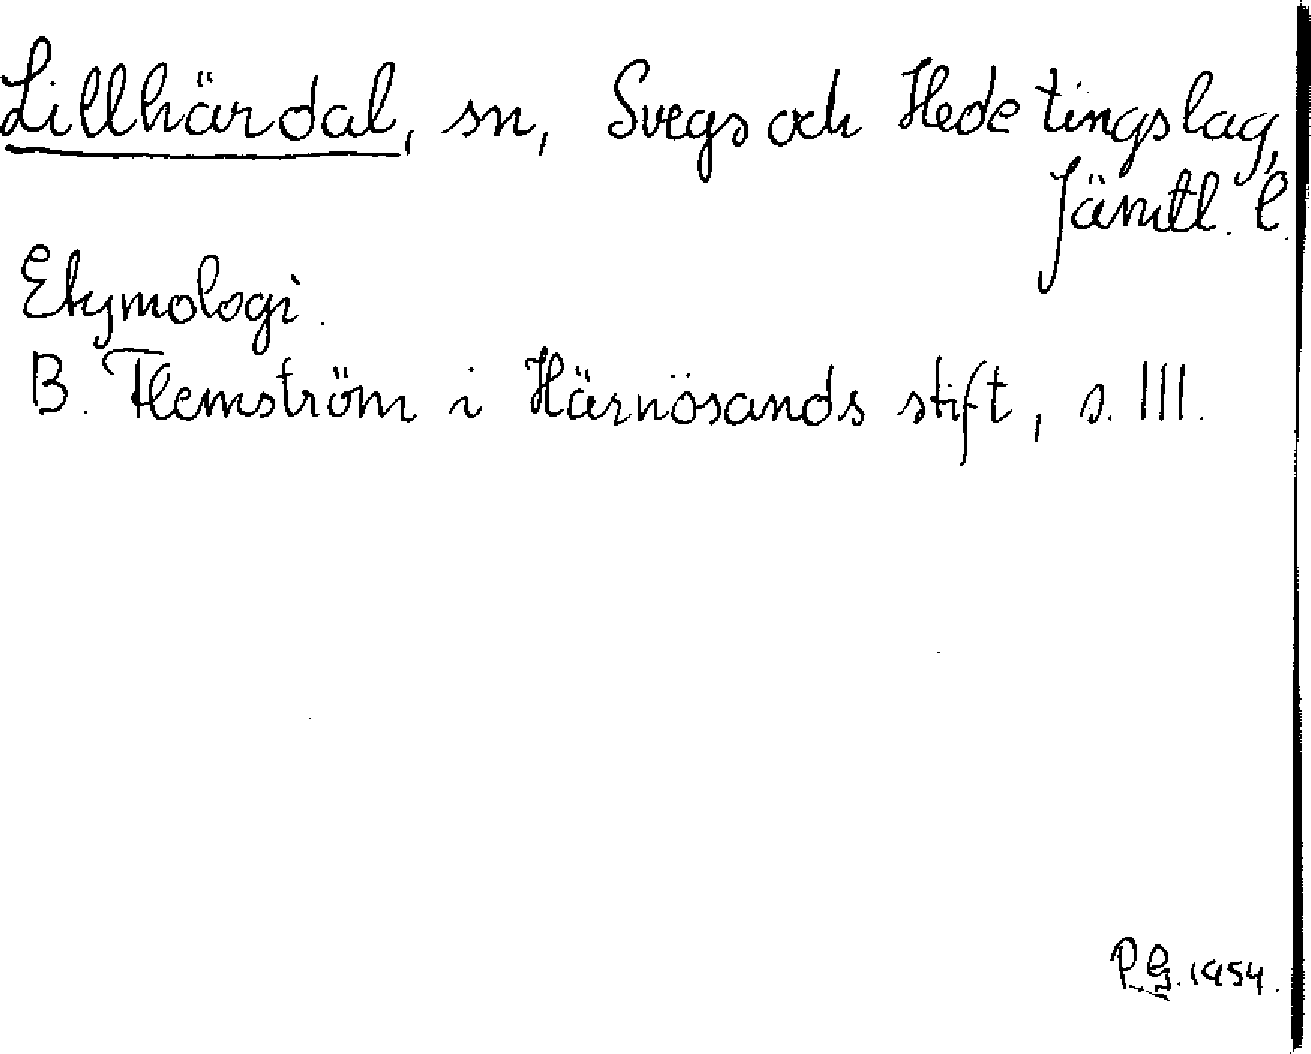 Lillhärdal, sn, Svegs och Hede tingslag,
Jämtl. l.
Etymologi.
B. Flemström i Härnösands stift, s. 111.
P.G. 1954.